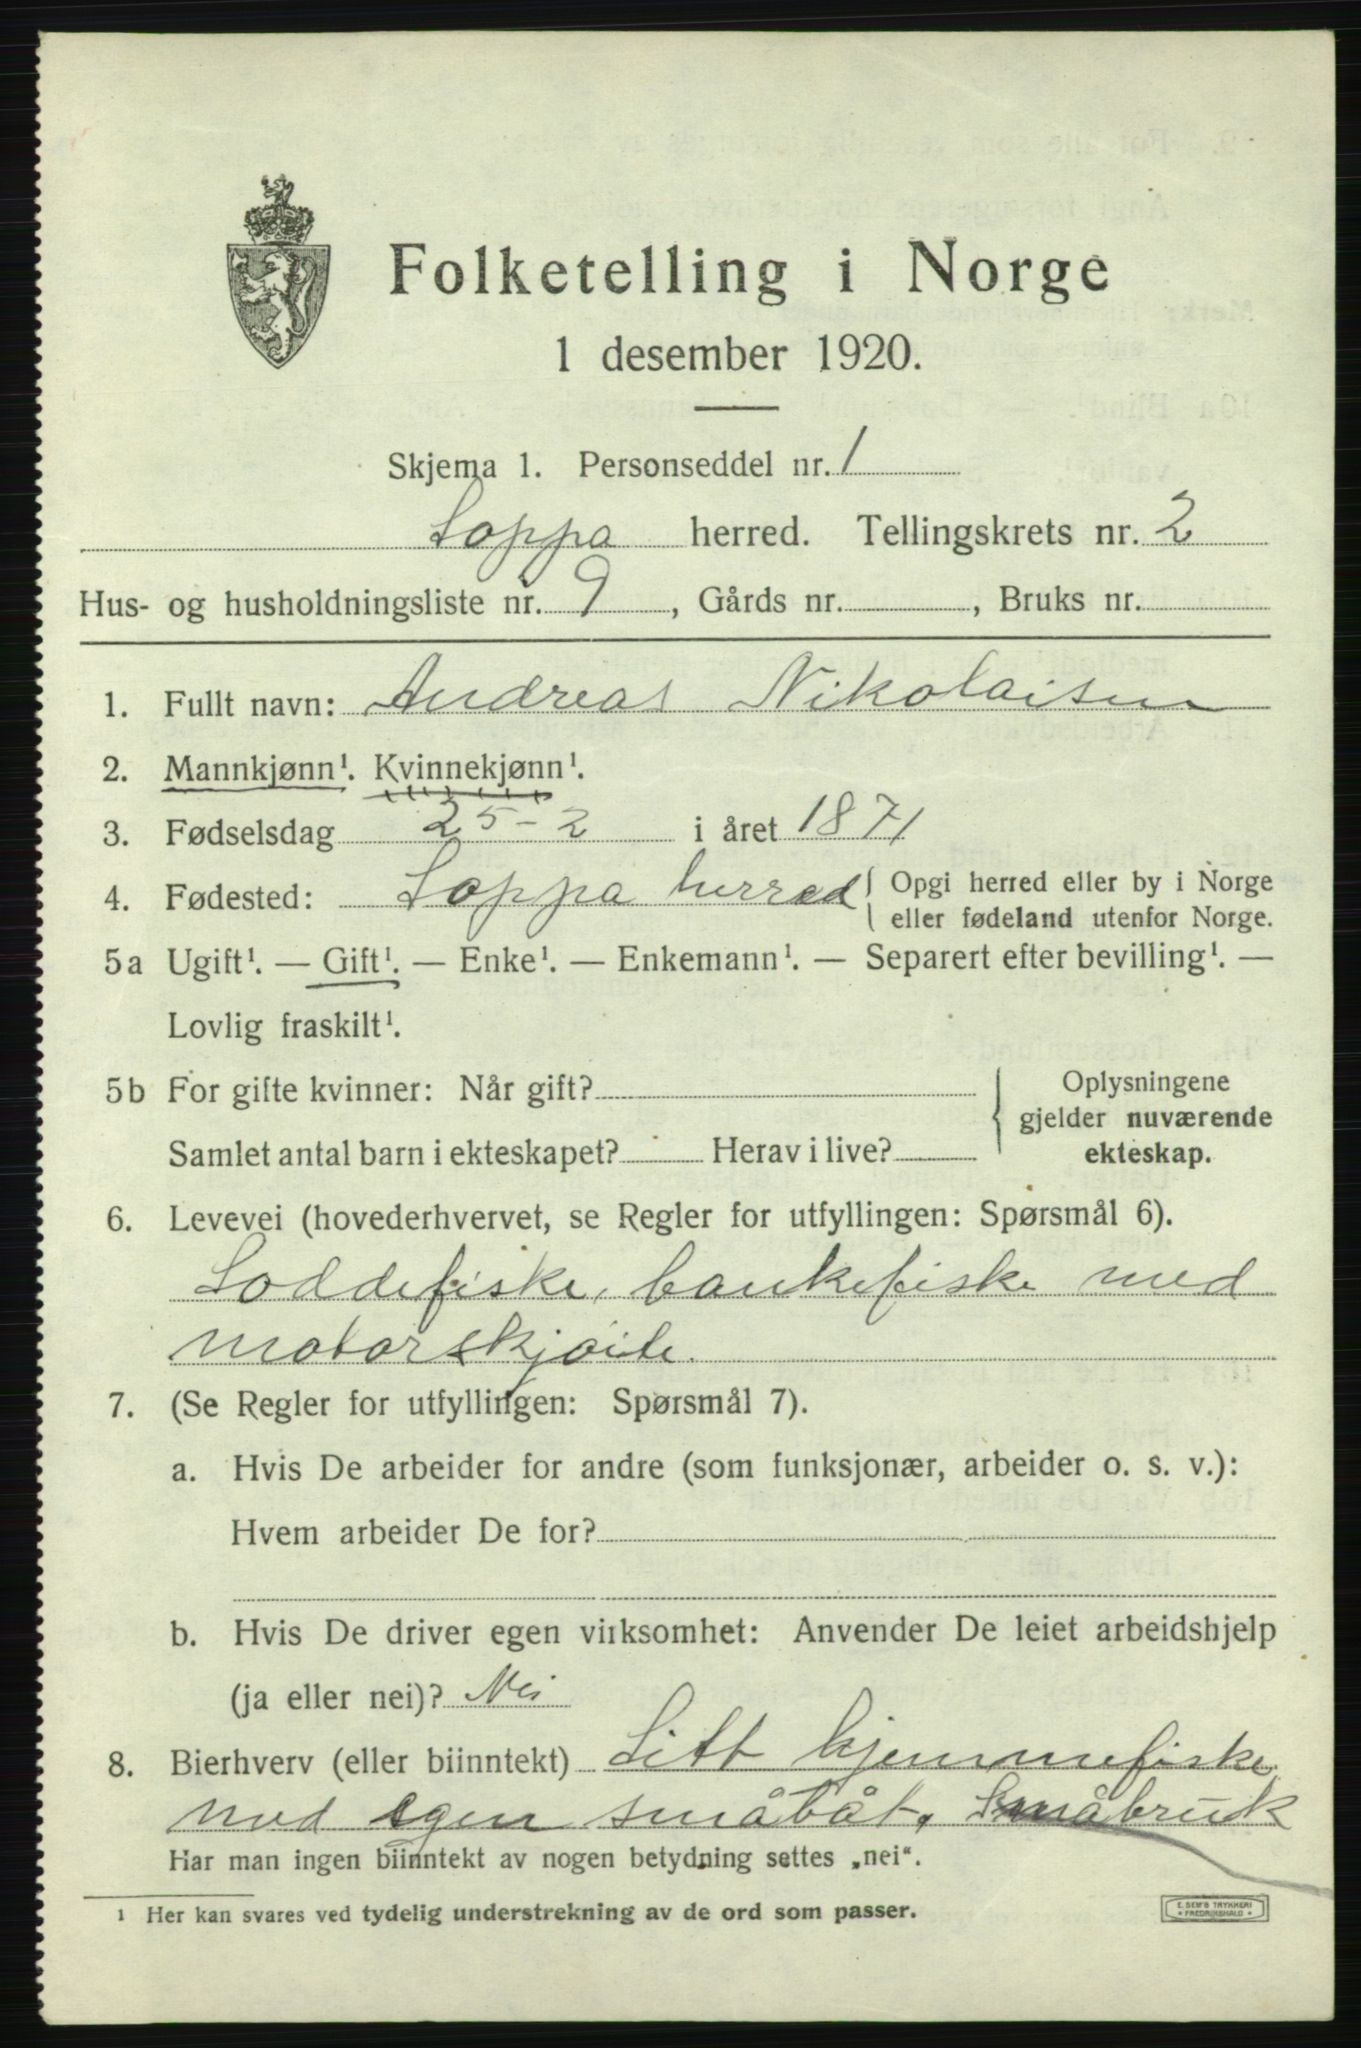 Folketelling i Norge
1 desember 1920.
Skjema 1. Personseddel nr. 1
Loppa herred. Tellingskrets nr. 2
Hus- og husholdningsliste nr. 9, Gårds nr. , Bruks nr.
1. Fullt navn: Andreas Nikolaisen
2. Mannkjønn¹. Kvinnekjønn¹.
3. Fødselsdag 25-2 i året 1871
4. Fødested: Loppa herred { Opgi herred eller by i Norge
eller fødeland utenfor Norge.
5a Ugift¹. — Gift¹. — Enke¹. — Enkemann¹. — Separert efter bevilling¹. —
Lovlig fraskilt¹.
5b For gifte kvinner: Når gift? { Oplysningene
gjelder nuværende
Samlet antal barn i ekteskapet? Herav i live? ekteskap.
6. Levevei (hovederhvervet, se Regler for utfyllingen: Spørsmål 6).
Loddefiske, bankefiske med
motorskjøite.
7. (Se Regler for utfyllingen: Spørsmål 7).
a. Hvis De arbeider for andre (som funksjonær, arbeider o. s. v.):
Hvem arbeider De for?
b. Hvis De driver egen virksomhet: Anvender De leiet arbeidshjelp
(ja eller nei)? Nei
8. Bierhverv (eller biinntekt) Litt hjemmefiske
med egen småbåt. Småbruk
Har man ingen biinntekt av nogen betydning settes „nei“.
¹ Her kan svares ved tydelig understrekning av de ord som passer.
E. SEM'S TRYKKERI
* FREDRIKSHALD *